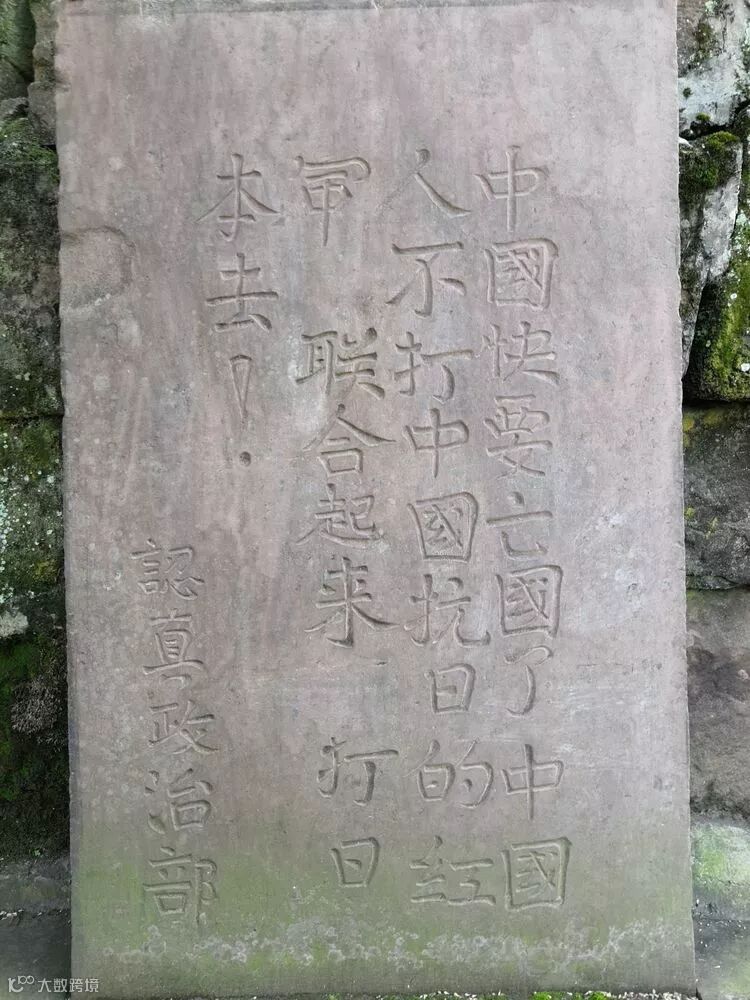 中國快要亡國了 中國
人不打中國抗日的红
军 联合起来 打日
本去！
認真政治部
大数跨境